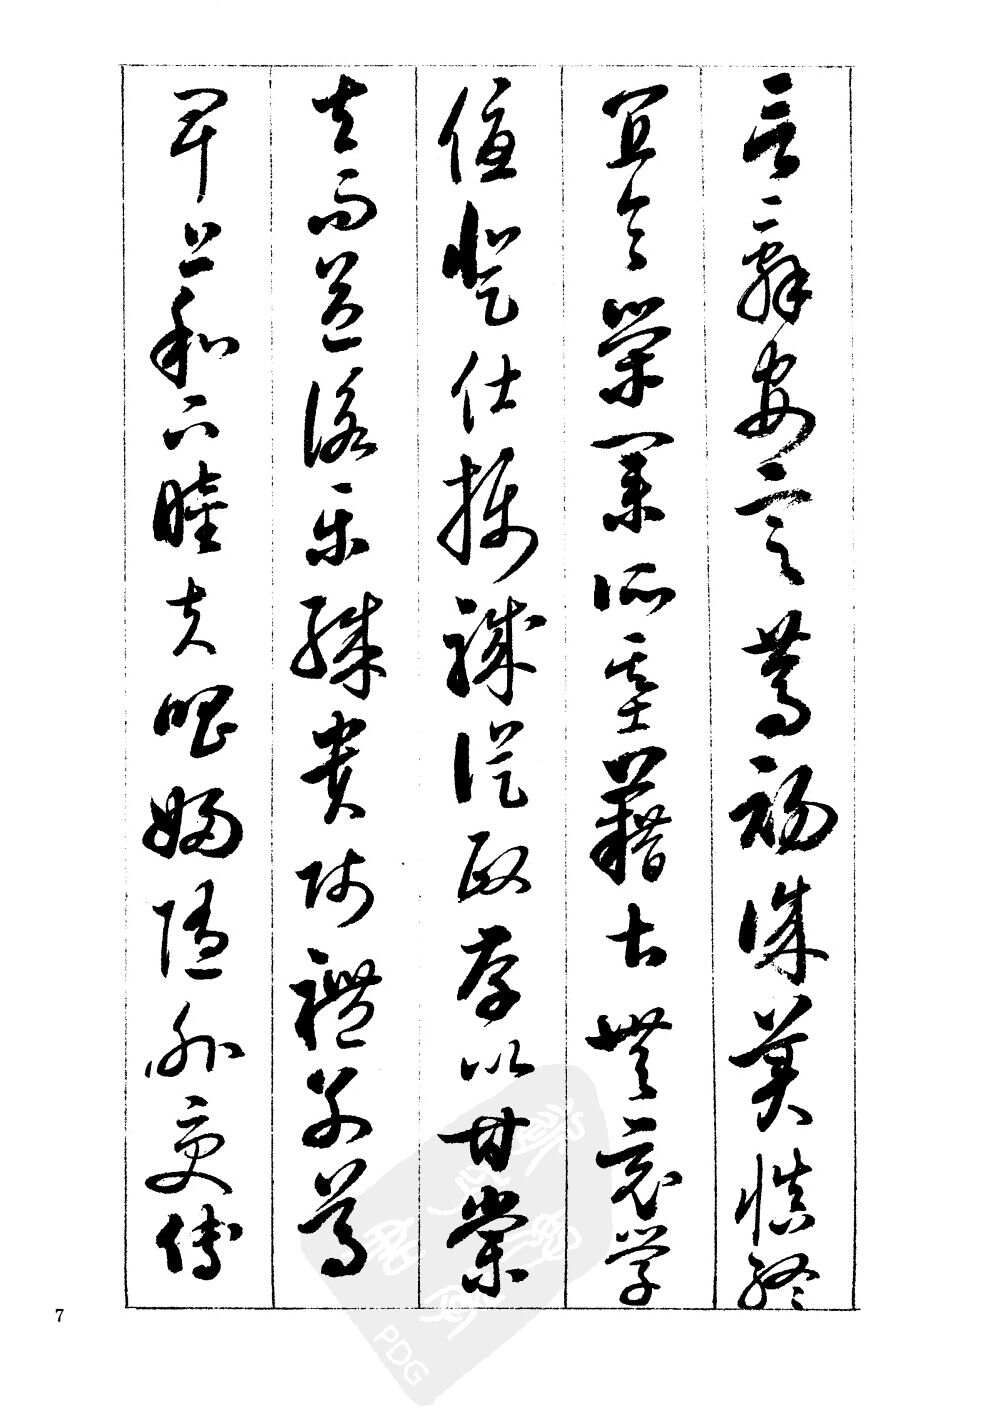 言辭安定篤初誠美慎終
宜令榮業所基藉甚無竟學
優登仕攝職從政存以甘棠
去而益詠樂殊貴賤禮別尊
卑上和下睦夫唱婦隨外受傅
7
PDG